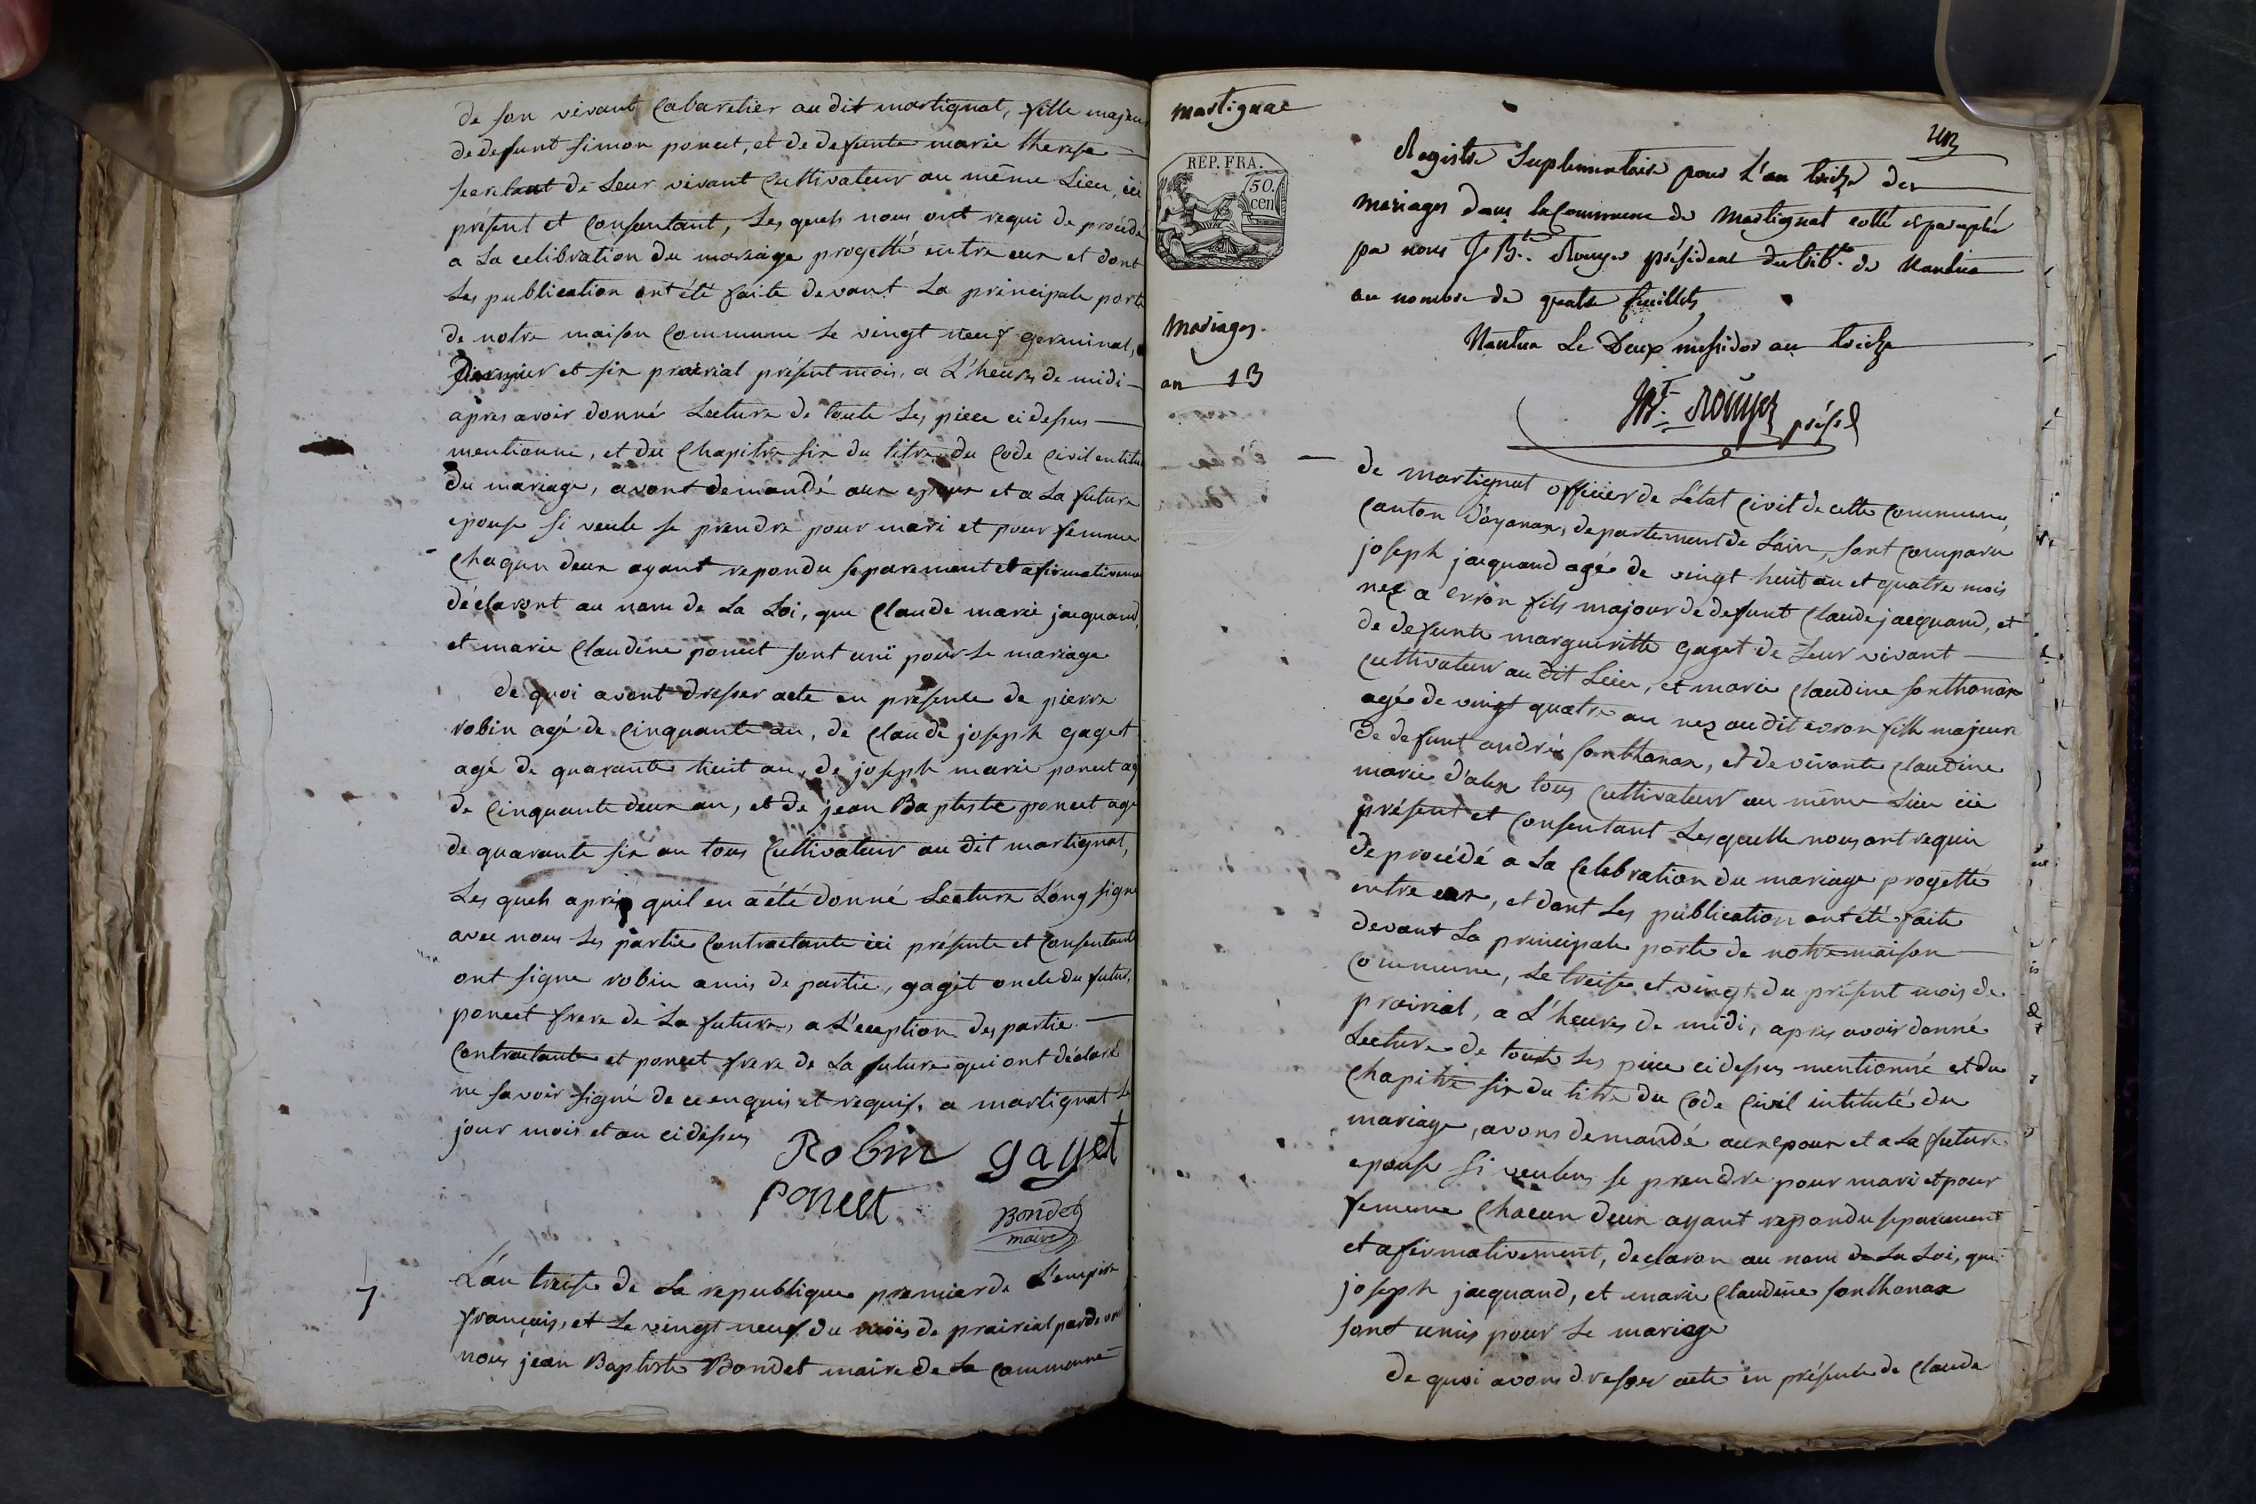 de son vivant Cabaretier au dit martignat, fille majeur
de defunt simon poncet, et de defunte marie therese
de Leur vivant Cultivateur au même Lieu, ici
présent et Consentant, Les quels nous ont requi de procédé
a La celibration du mariage progetté entre eux et dont
Les publication ont été faite devant La principale porte
de notre maison Commune Le vingt neuf germinal,
Dernier et six prairial présent mois, a L'heures de midi
apres avoir donné Lecture de toute Les piece ci dessus
mentionne, et du Chapitre six du titre du Code Civil entitu
Du mariage, avont demandé aux epoux et a La future
epouse si veule se prendre pour mari et pour femme
Chaqun deux ayant repondu separement et afirmativeme
déclaront au nom de La Loi, que Claude marie jacquand,
et marie Claudine poncet sont uni pour Le mariage
de quoi avont dresser acte en presence de pierre
robin agé de Cinquante an, de Claude joseph gaget
agé de quarante huit an, de joseph marie poncet ag
de Cinquante deux an, et de jean Baptiste poncet agé
de quarante six an tous Cultivateur au dit martignat,
Les quels après quil en a été donné Lecture Long signe
avec nous Les partie Contractante ici présente et Consentant
ont signe robin amis de partie, gaget oncle du futur,
poncet frere de La future, a L'eception des partie
Contractante et poncet frere de La future qui ont déclaré
ne savoir signé de ce enquis et requis, a martignat Le
jour mois et an ci dessus
Robin gaget
Poncet
Bondet
maire
7
L'an treise de La republique premier de L'empire
français, et Le vingt neuf du mois de prairial pardevant
nous jean Baptiste Bondet maire de La Commune
martignat
REP. FRA.
50.
cen
mariages.
an 13
un
Registre Suplementaire pour L'an treize des
mariages dans la Commune de Martignat cotté et paraphé
par nous J. Bte. Rouyer président du trib.l de Nantua
au nombre de quatre feuillets
Nantua Le Deux messidor an treize
JBT. Rouyer présid
de martignat officier de L'état Civil de cette Commune,
Canton d'oyonax, departement de L'ain, sont comparu
joseph jacquand agé de vingt huit an et quatre mois
nez a evron fils majour de defunt Claude jacquand, et
de defunte margueritte gaget de Leur vivant
Cultivateur au dit Lieu, et marie Claudine sonthonax
agée de vingt quatre an nez au dit evron fille majeure
de defunt andré sonthonax, et de vivante Claudine
marie d'alex tous Cultivateur au même Lieu ici
présent et Consentant Lesquelle nous ont requin
de procédé a La Celebration du mariage progetté
entre eux, et dont Les publication ont été faite
devant La principale porte de notre maison
Commune, Le treise et vingt du présent mois de
prairial, a L'heures de midi, apres avoir donné
Lecture de toute Les piece ci dessus mentionné et du
Chapitre six du titre du Code Civil intitulé du
mariage, avons demandé aux epoux et a La future
epouse si veulen se prendre pour mari et pour
femme Chacun deux ayant repondu separement
et afirmativement, declaron au nom de La Loi, que
joseph jacquand, et marie Claudine sonthonax
sont unis pour Le mariage
de quoi avons dresser acte en présence de Claude